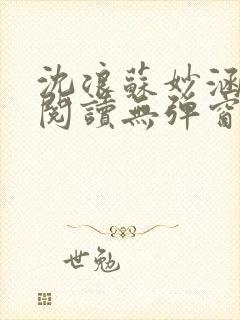 沈浪蘇妙涵
閱讀無彈窗
世勉